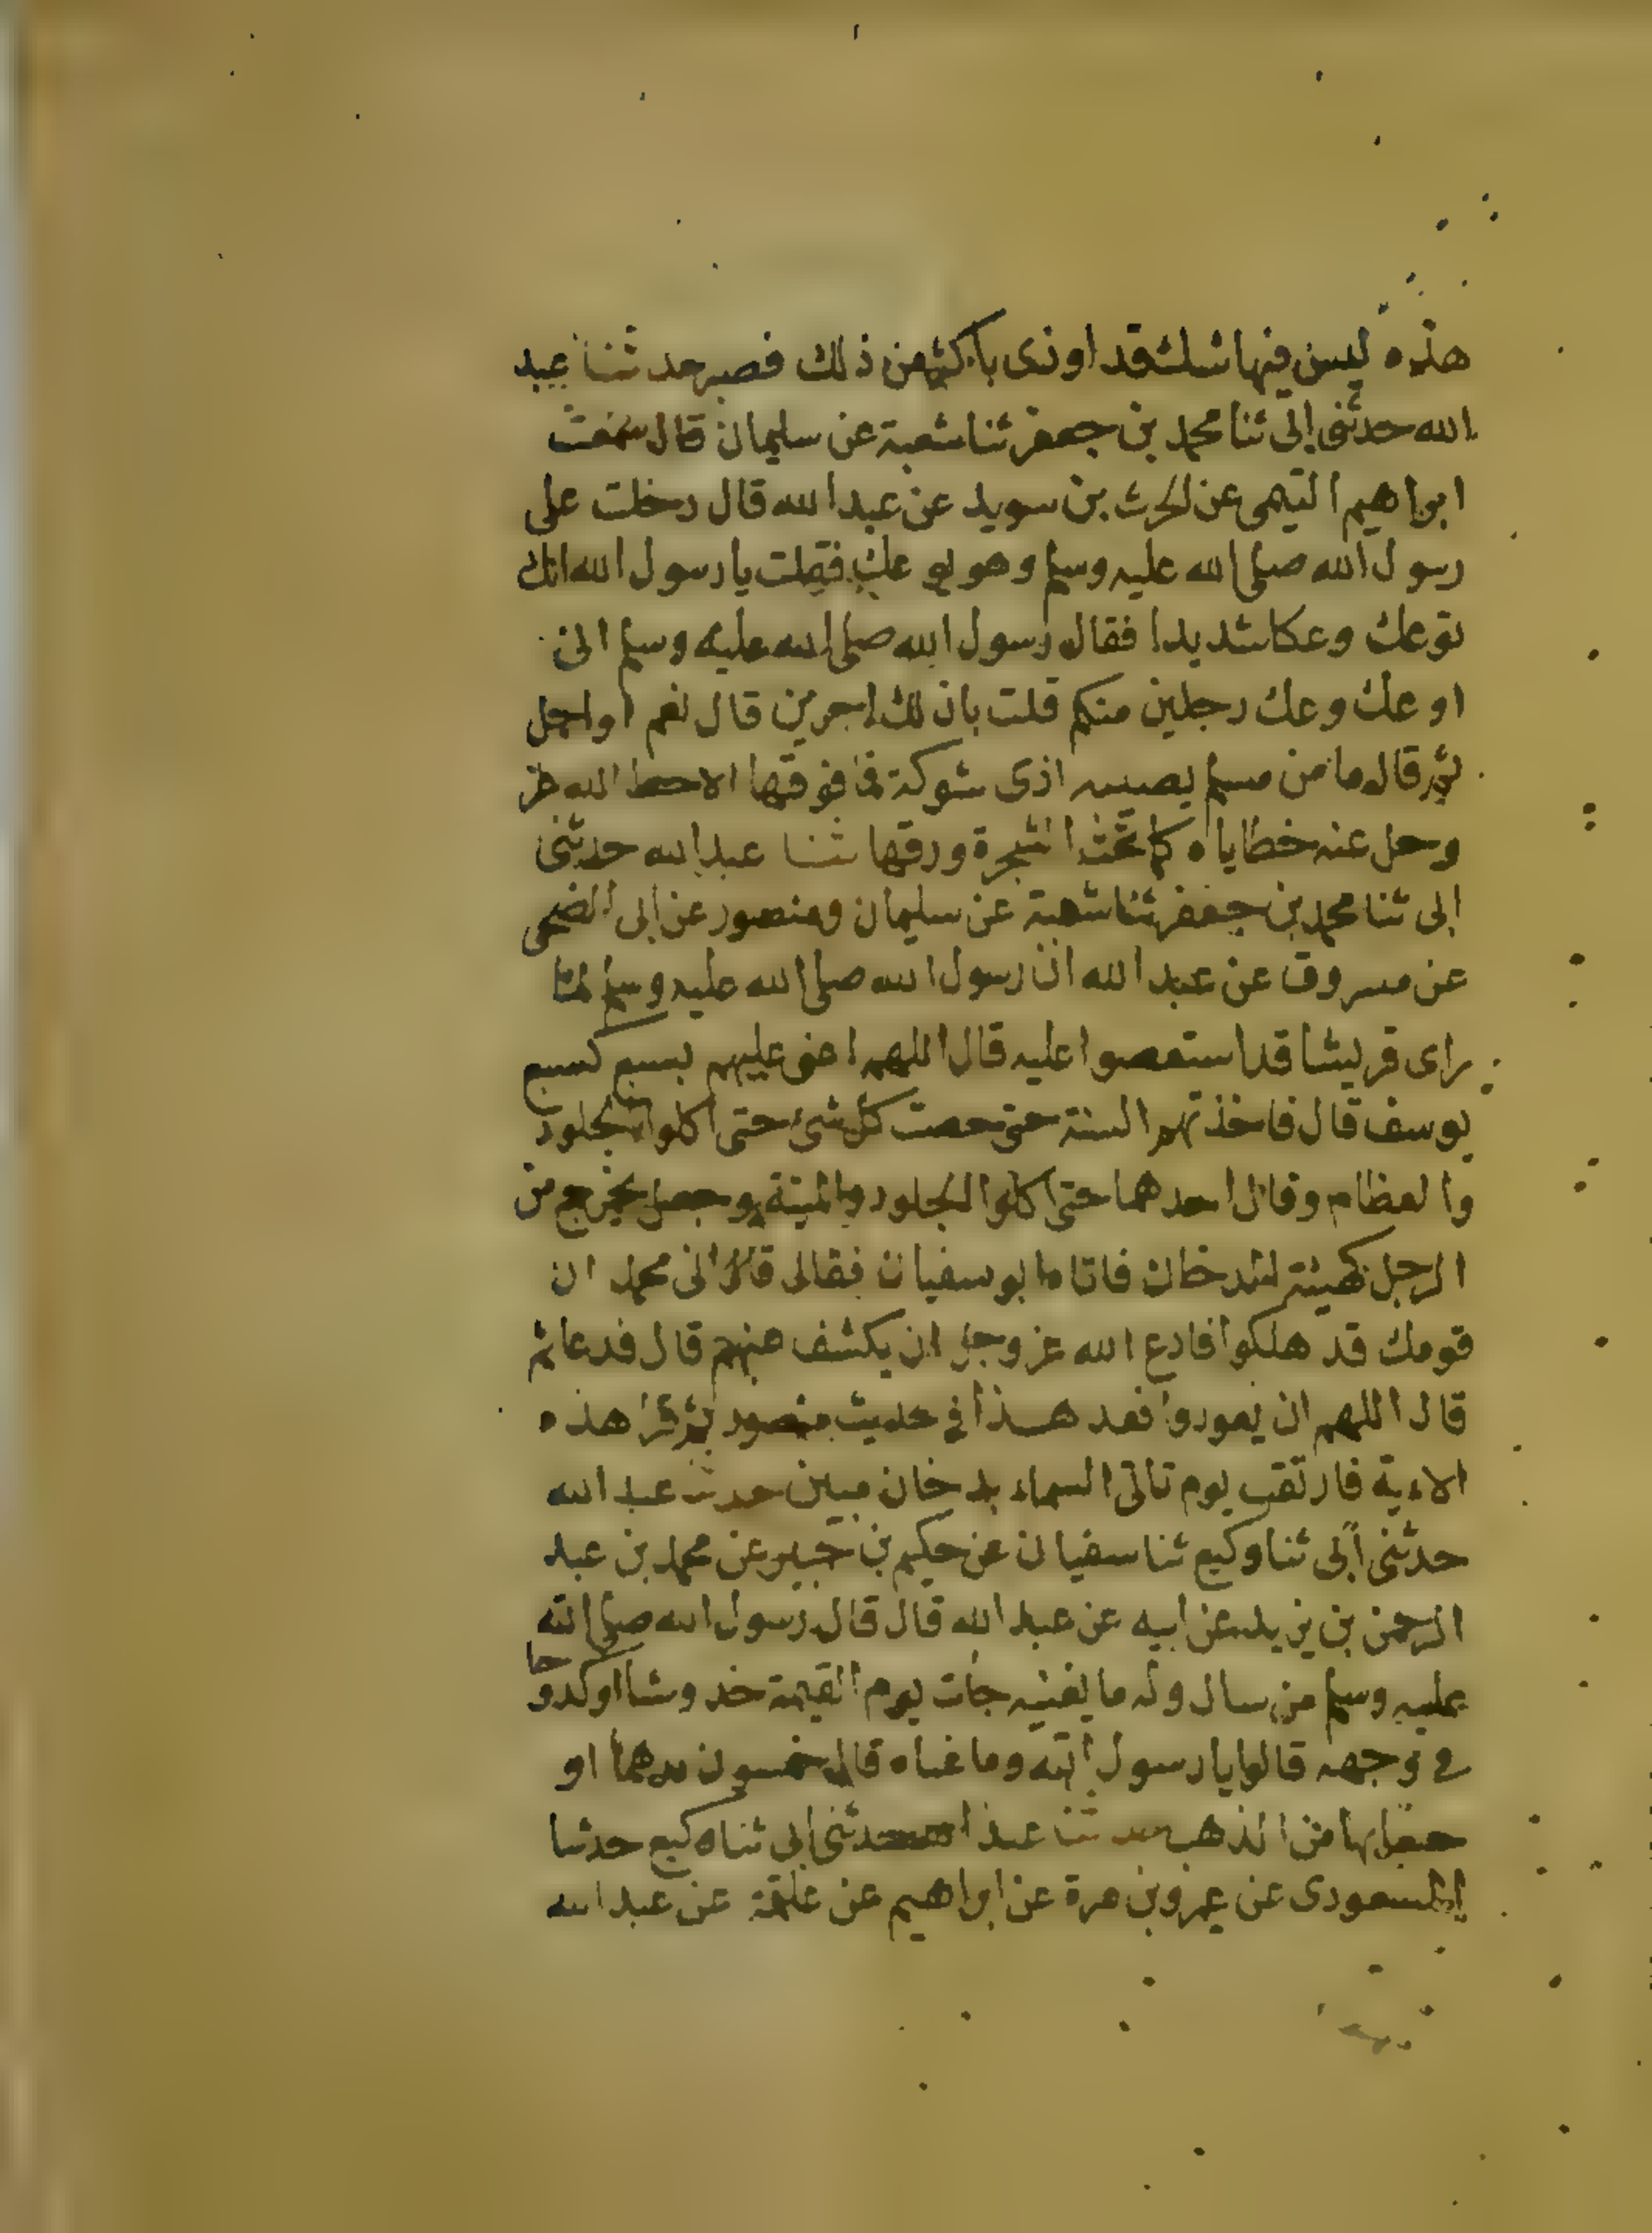 هذه ليس فيها شك قد اوذى باكثر من ذلك فصبر حدثنا عبد
الله حدثنى ابى ثنا محمد بن جعفر ثنا شعبة عن سليمان قال سمعت
ابراهيم التيمى عن الحرث بن سويد عن عبد الله قال دخلت على
رسول الله صلى الله عليه وسلم وهو يوعك فقلت يا رسول الله انك
توعك وعكا شديدا فقال رسول الله صلى الله عليه وسلم انى
اوعك وعك رجلين منكم قلت بان لك اجرين قال نعم اواجل
ثم قال ما من مسلم يصيبه اذى شوكة فما فوقها الا حط الله عز
وجل عنه خطاياه كما تحت الشجرة ورقها ثنا عبد الله حدثنى
ابى ثنا محمد بن جعفر ثنا شعبة عن سليمان ومنصور عن ابى الضحى
عن مسروق عن عبد الله ان رسول الله صلى الله عليه وسلم لما
راى قريشا قد استعصوا عليه قال اللهم اعنى عليهم بسبع كسبع
يوسف قال فاخذتهم السنة حتى حصت كل شئ حتى اكلوا الجلود
والعظام وقال احدهما حتى اكلوا الجلود والميتة وجعل يخرج من
الرجل كهيئة الدخان فاتاه ابو سفيان فقال اى محمد ان
قومك قد هلكوا فادع الله عز وجل ان يكشف عنهم قال فدعا ثم
قال اللهم ان يعودوا فعد هذا في حديث منصور ثم قرا هذه
الاية فارتقب يوم تاتى السماء بدخان مبين حدثنا عبد الله
حدثنى ابى ثنا وكيع ثنا سفيان عن حكيم بن جبير عن محمد بن عبد
الرحمن بن يزيد عن ابيه عن عبد الله قال قال رسول الله صلى الله
عليه وسلم من سال وله ما يغنيه جات يوم القيمة خدوشا او كدوحا
في وجهه قالوا يا رسول الله وما غناه قال خمسون درهما او
حسابها من الذهب حدثنا عبد الله حدثنى ابى ثنا وكيع حدثنا
المسعودى عن عمرو بن مرة عن ابراهيم عن علقمة عن عبد الله